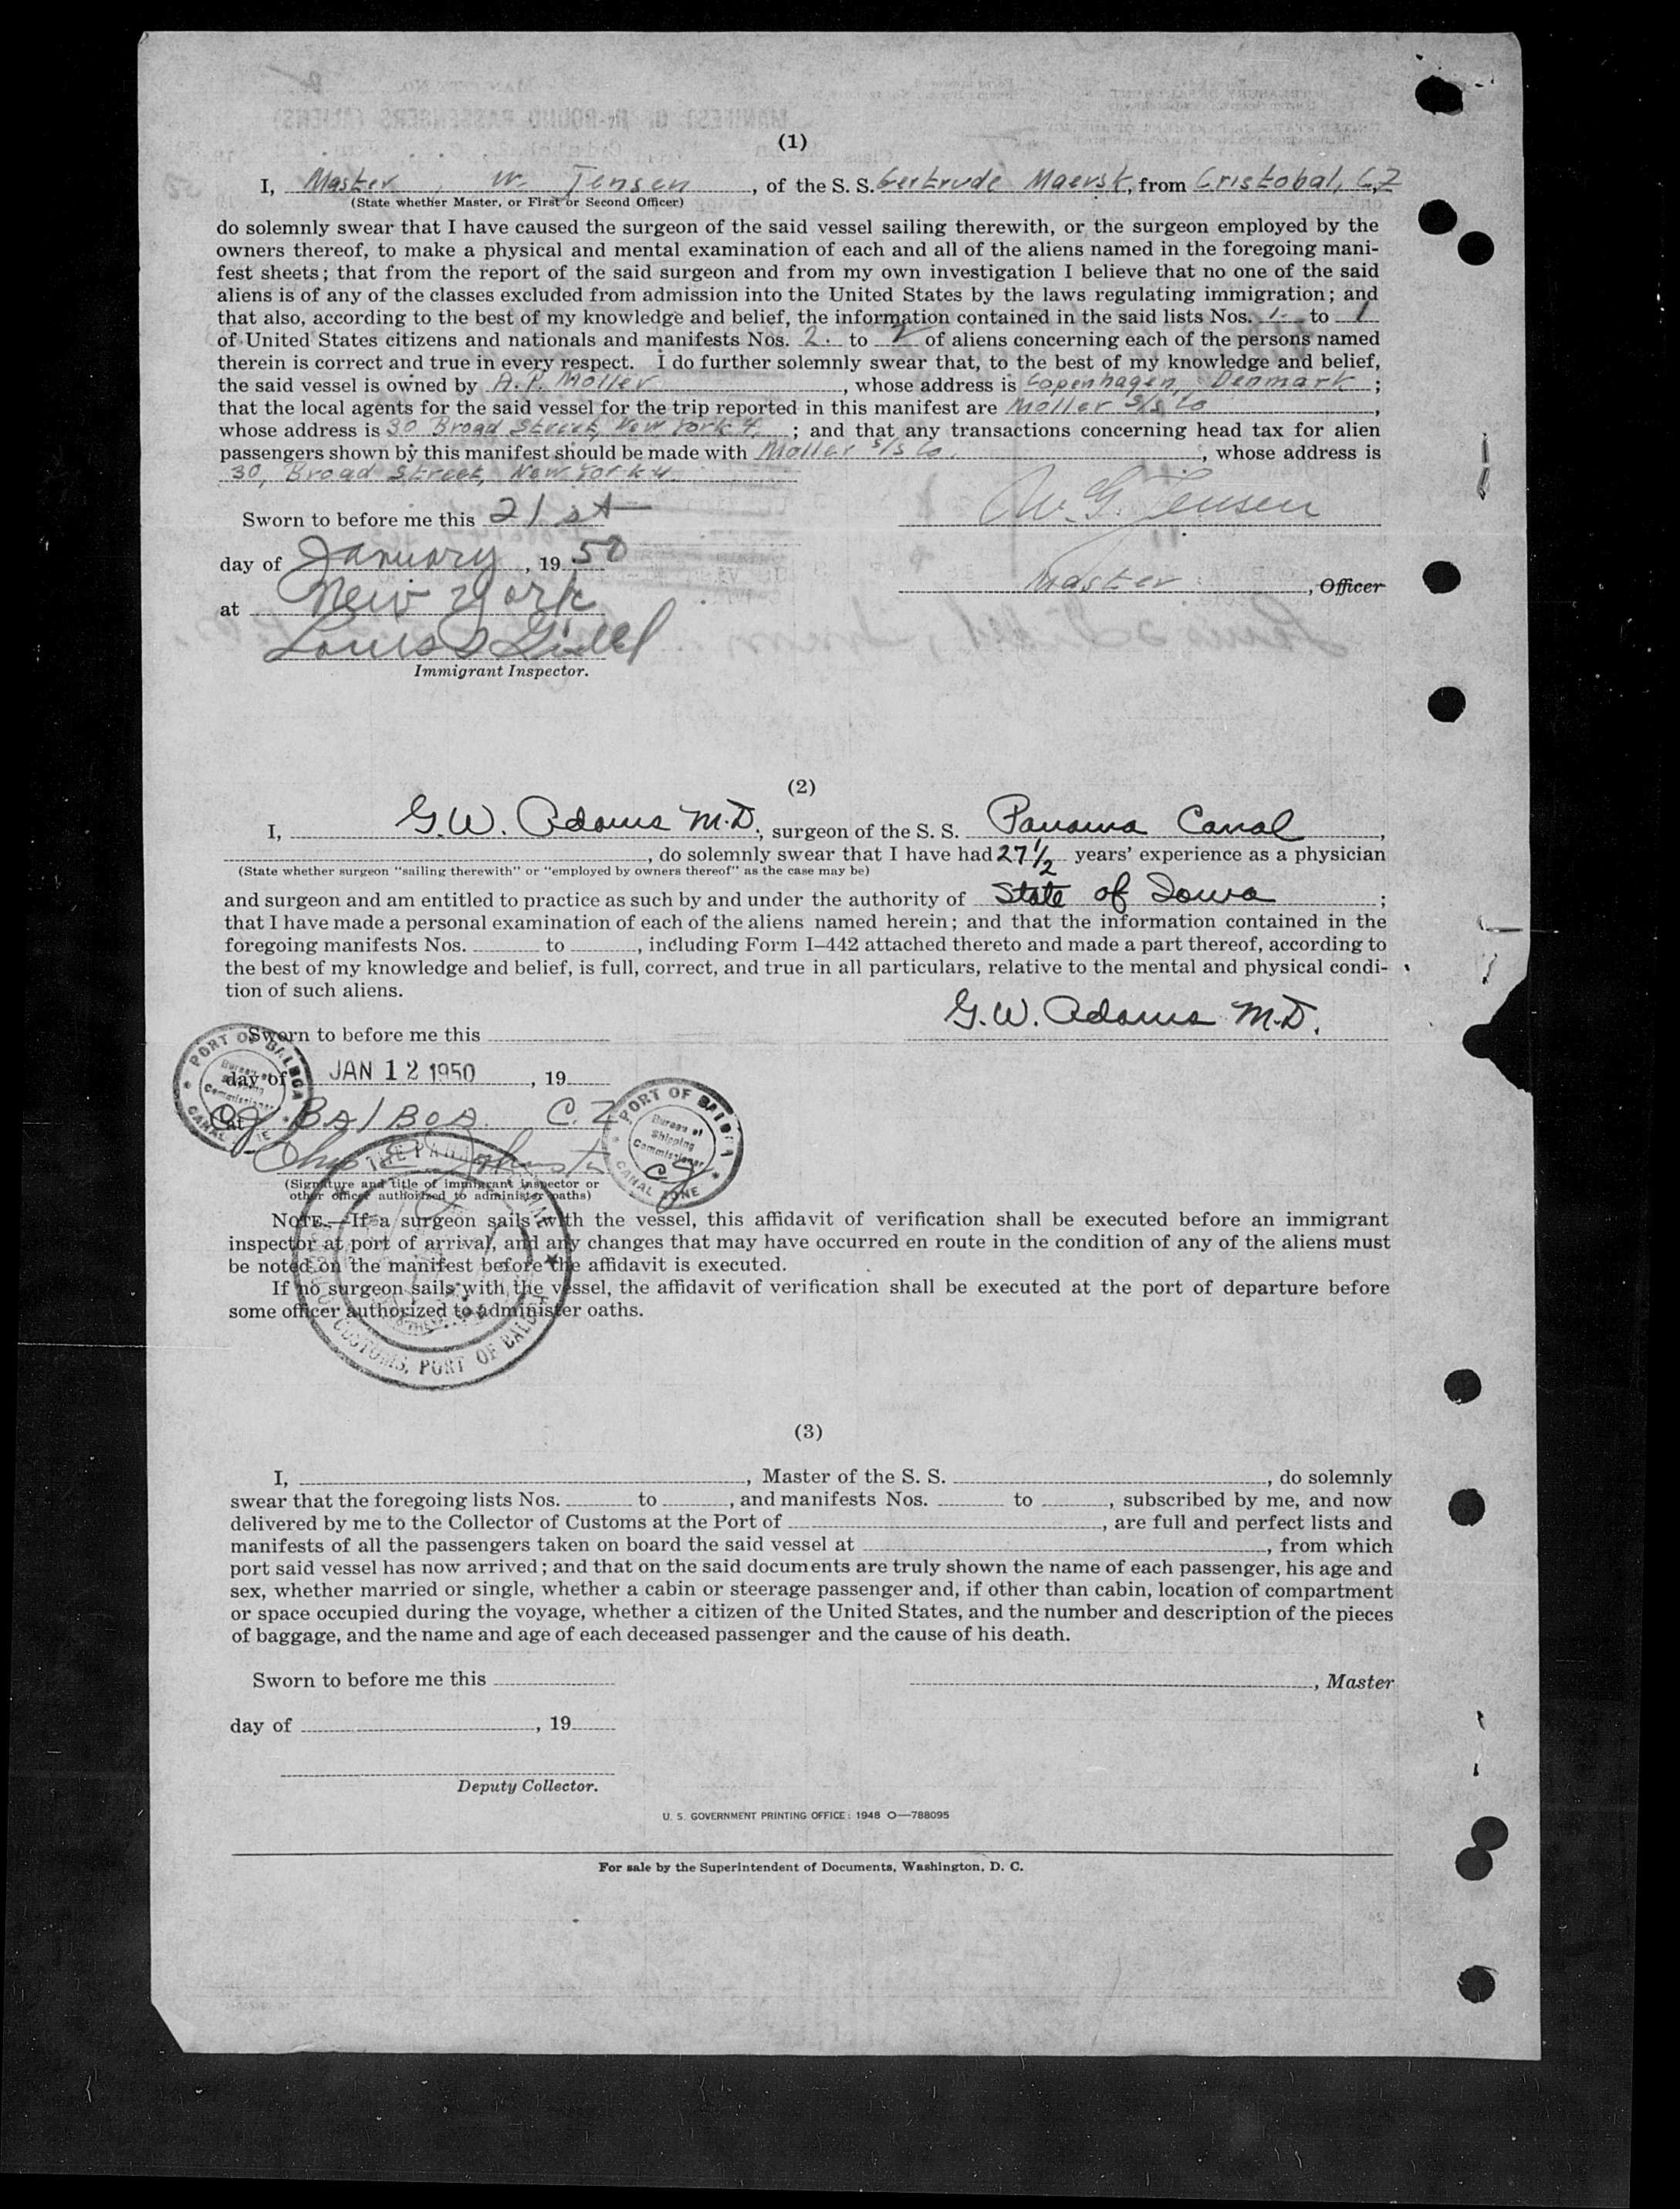 (1)
I, Master, W. Jensen, of the S. S. Gertrude Maersk, from Cristobal, C.Z
(State whether Master, or First or Second Officer)
do solemnly swear that I have caused the surgeon of the said vessel sailing therewith, or the surgeon employed by the
owners thereof, to make a physical and mental examination of each and all of the aliens named in the foregoing mani-
fest sheets; that from the report of the said surgeon and from my own investigation I believe that no one of the said
aliens is of any of the classes excluded from admission into the United States by the laws regulating immigration; and
that also, according to the best of my knowledge and belief, the information contained in the said lists Nos. 1 to 1
of United States citizens and nationals and manifests Nos. 2 to 2 of aliens concerning each of the persons named
therein is correct and true in every respect. I do further solemnly swear that, to the best of my knowledge and belief,
the said vessel is owned by A. P. Moller, whose address is Copenhagen, Denmark;
that the local agents for the said vessel for the trip reported in this manifest are Moller S/S Co,
whose address is 30 Broad Street, New York 4.; and that any transactions concerning head tax for alien
passengers shown by this manifest should be made with Moller S/S Co., whose address is
30, Broad Street, New York 4.
Sworn to before me this 21st
W. G. Jensen
day of January, 19 50
Master, Officer
at New York
Louis
Immigrant Inspector.
(2)
I, G.W. Adams M.D., surgeon of the S. S. Panama Canal,
, do solemnly swear that I have had 27 1/2 years' experience as a physician
(State whether surgeon "sailing therewith" or "employed by owners thereof" as the case may be)
and surgeon and am entitled to practice as such by and under the authority of State of Iowa;
that I have made a personal examination of each of the aliens named herein; and that the information contained in the
foregoing manifests Nos. to , including Form I-442 attached thereto and made a part thereof, according to
the best of my knowledge and belief, is full, correct, and true in all particulars, relative to the mental and physical condi-
tion of such aliens.
G.W. Adams M.D.
Sworn to before me this
PORT OF BALBOA
Bureau of Shipping Commissioner
CANAL ZONE
day of JAN 12 1950, 19
at BALBOA. C.Z
PORT OF BALBOA
Bureau of
Shipping
Commissioner
CANAL ZONE
(Signature and title of immigrant inspector or
other officer authorized to administer oaths)
NOTE.—If a surgeon sails with the vessel, this affidavit of verification shall be executed before an immigrant
inspector at port of arrival, and any changes that may have occurred en route in the condition of any of the aliens must
be noted on the manifest before the affidavit is executed.
If no surgeon sails with the vessel, the affidavit of verification shall be executed at the port of departure before
some officer authorized to administer oaths.
CUSTOMS, PORT OF BALBOA
(3)
I, , Master of the S. S. , do solemnly
swear that the foregoing lists Nos. to , and manifests Nos. to , subscribed by me, and now
delivered by me to the Collector of Customs at the Port of , are full and perfect lists and
manifests of all the passengers taken on board the said vessel at , from which
port said vessel has now arrived; and that on the said documents are truly shown the name of each passenger, his age and
sex, whether married or single, whether a cabin or steerage passenger and, if other than cabin, location of compartment
or space occupied during the voyage, whether a citizen of the United States, and the number and description of the pieces
of baggage, and the name and age of each deceased passenger and the cause of his death.
Sworn to before me this
, Master
day of , 19
Deputy Collector.
U. S. GOVERNMENT PRINTING OFFICE: 1948 O—788095
For sale by the Superintendent of Documents, Washington, D. C.